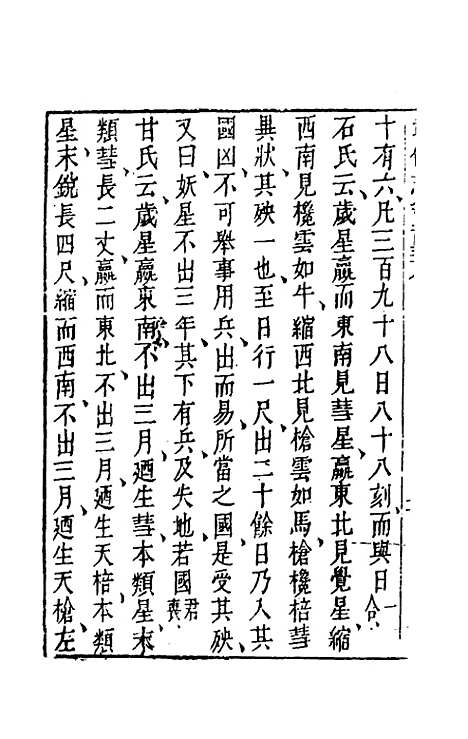 十有六凡三百九十八日八十八刻而與日合一
石氏云歲星贏而東南見彗星贏東北見覺星縮
西南見欃雲如牛縮西北見槍雲如馬槍欃棓彗
異狀其殃一也至日行一尺出二十餘日乃入其
國凶不可舉事用兵出而易所當之國是受其殃
又曰妖星不出三年其下有兵及失地若國君喪
甘氏云歲星贏東南不出三月廼生彗本類星末
類彗長二丈贏而東北不出三月廼生天棓本類
星末銳長四尺縮而西南不出三月廼生天槍左